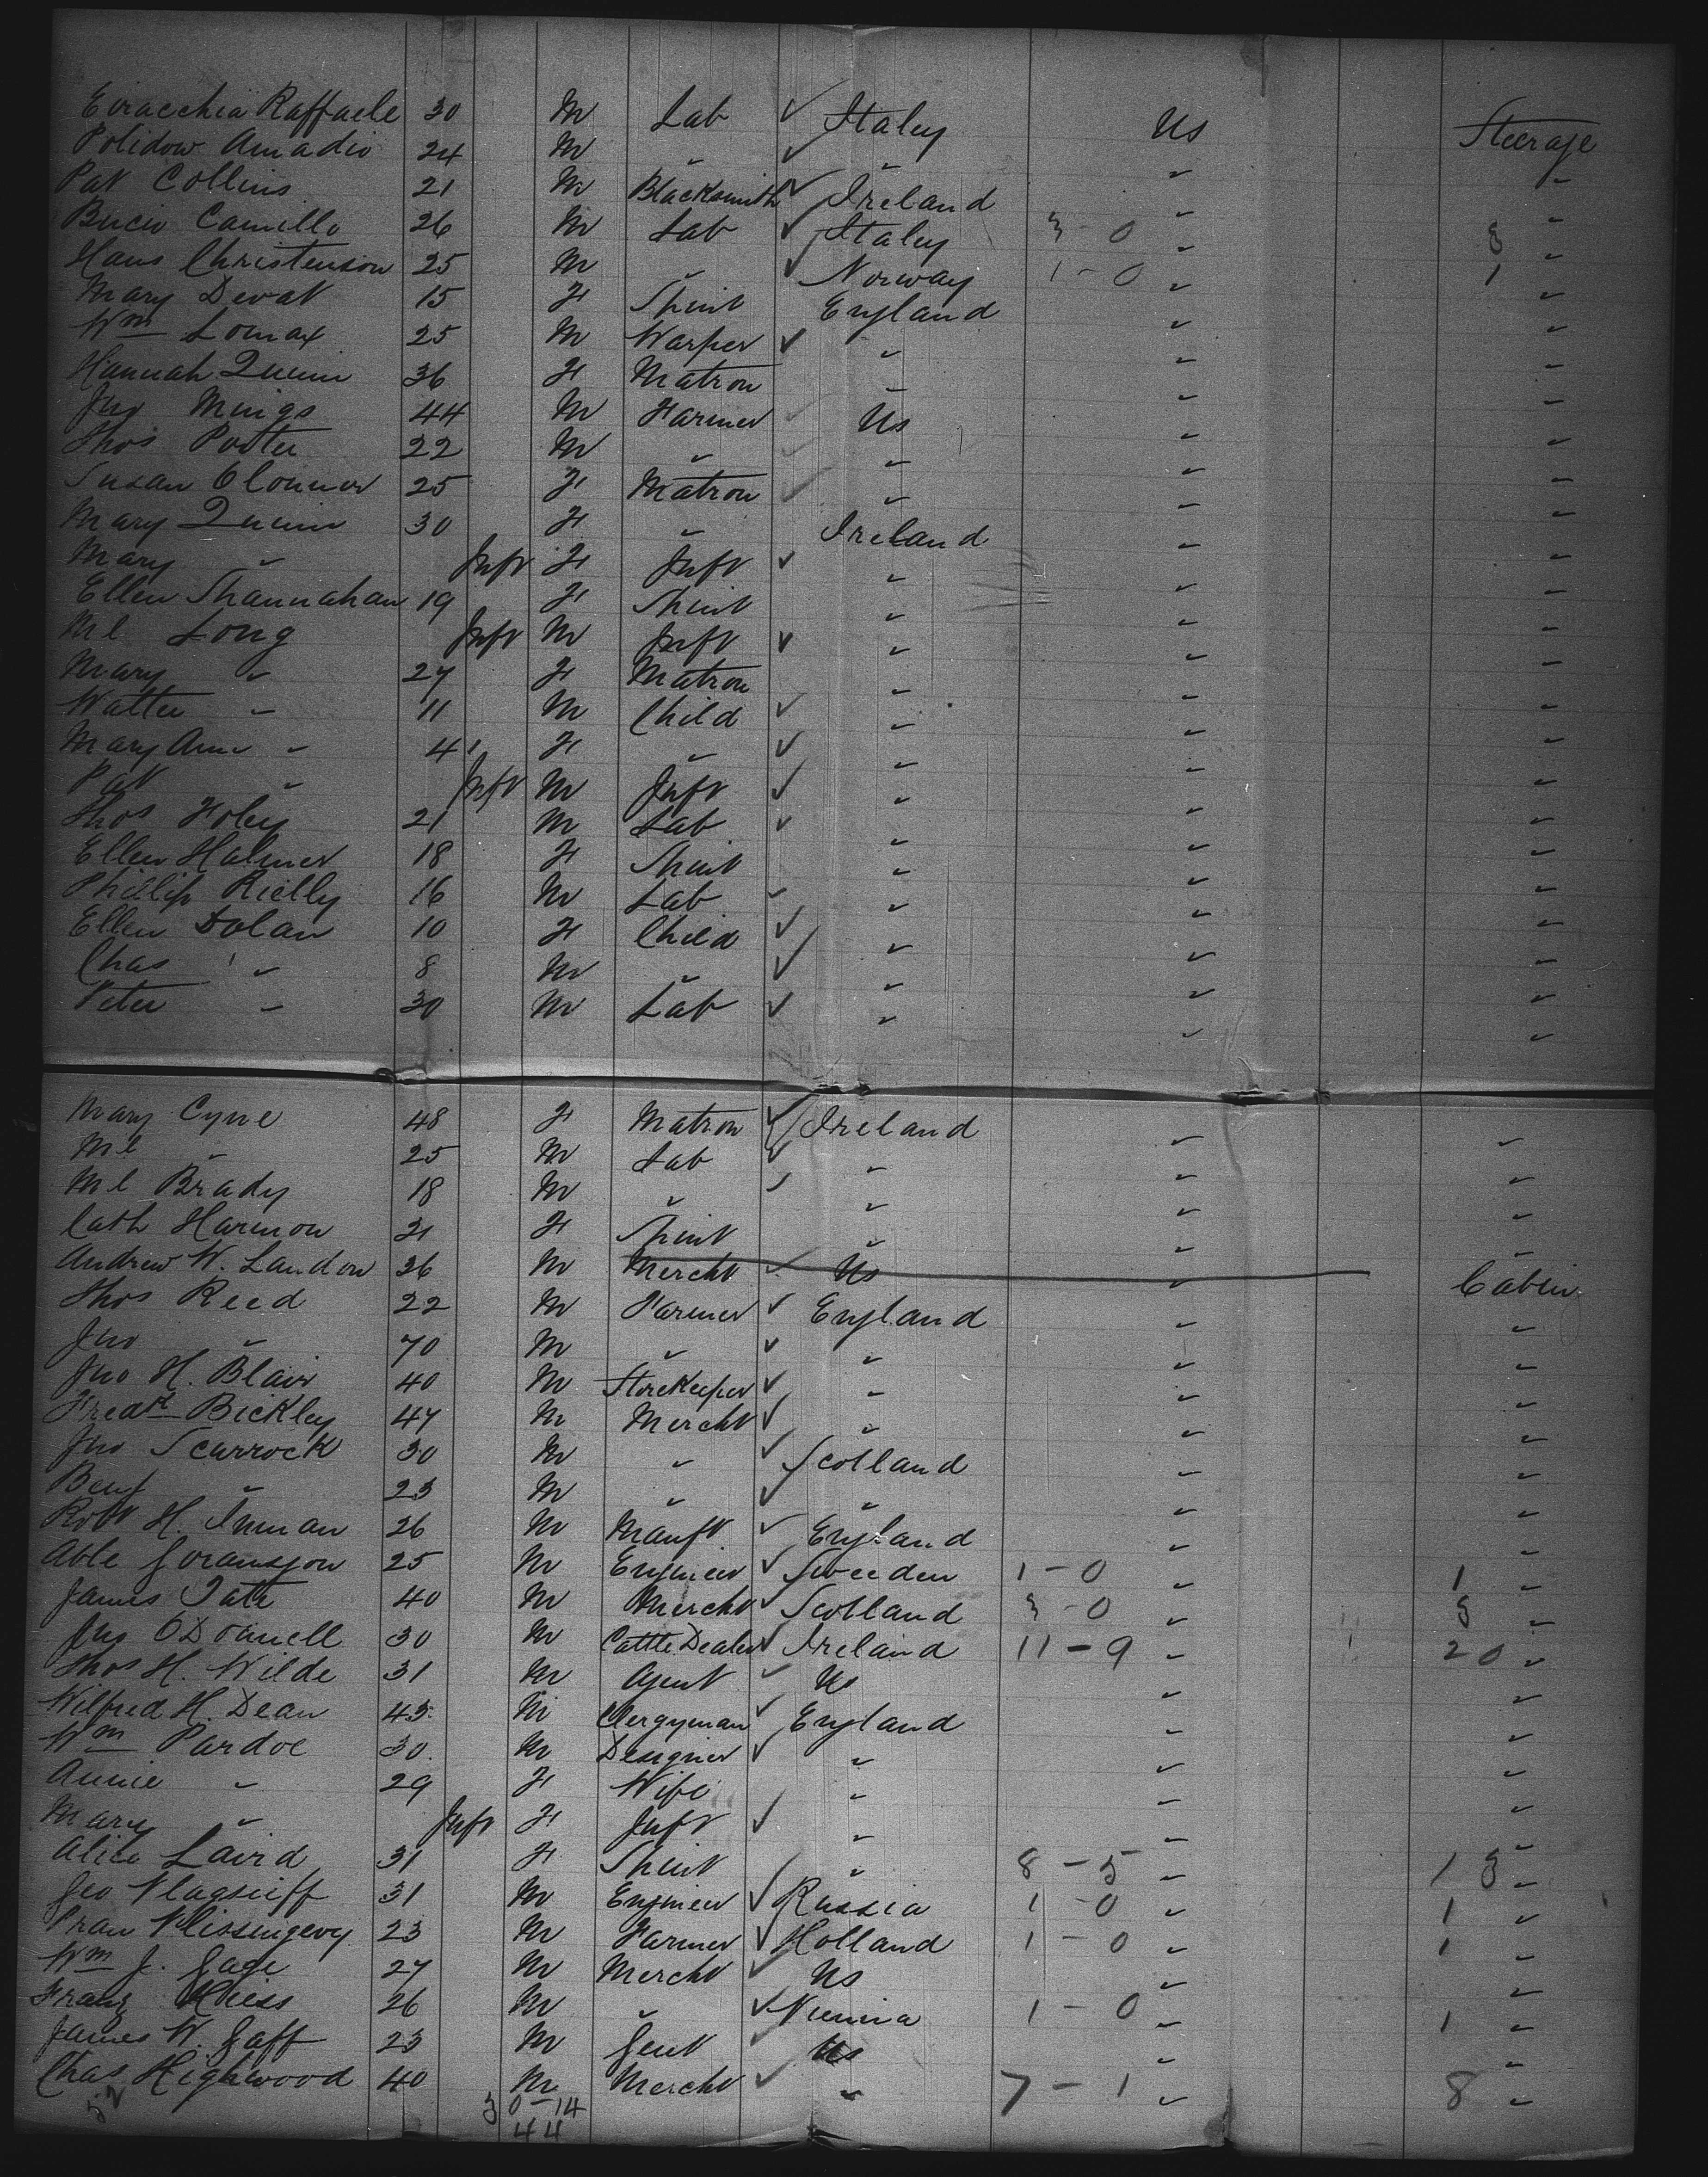 Eviacchia Raffaele 30 M Lab ✓ Italy Us Steerage
Polidow Amadio 24 M " ✓ " " "
Pat Collins 21 M Blacksmith ✓ Ireland " "
Bucio Camillo 26 M Lab ✓ Italy 3-0 " 3 "
Hans Christenson 25 M " ✓ Norway 1-0 " 1 "
Mary Devat 15 F Spint England " "
Wm Lomax 25 M Warper ✓ " " "
Hannah Quinn 36 F Matron " " "
Jno Mings 44 M Farmer ✓ Us " "
Thos Porter 22 M " ✓ " " "
Susan OConnor 25 F Matron ✓ " " "
Mary Quinn 30 F " Ireland " "
Mary " Inft F Inft ✓ " " "
Ellen Shannahan 19 F Spint " " "
Ml Long Inft M Inft ✓ " " "
Mary " 27 F Matron " " "
Walter " 11 M Child ✓ " " "
Mary Ann " 4 F " ✓ " " "
Pat " Inft M Inft ✓ " " "
Thos Foley 21 M Lab ✓ " " "
Ellen Halmer 18 F Spint " " "
Phillip Rielly 16 M Lab ✓ " " "
Ellen Dolan 10 F Child ✓ " " "
Chas " 8 M " ✓ " " "
Peter " 30 M Lab ✓ " " "
Mary Cyne 48 F Matron ✓ Ireland " "
Ml " 25 M Lab ✓ " " "
Ml Brady 18 M " ✓ " " "
Cath Harmon 21 F Spint " " "
Andrew W. Landon 36 M Mercht ✓ Us " Cabin
Thos Reed 22 M Farmer ✓ England " "
Jno " 70 M " ✓ " " "
Jno H. Blair 40 M Storekeeper ✓ " " "
Fredk Bickley 47 M Mercht ✓ " " "
Jno Scurrock 30 M " ✓ Scotland " "
Benj " 23 M " ✓ " " "
Robt H. Inman 26 M Manft ✓ England " "
Able Goransson 25 M Engineer ✓ Sweeden 1-0 " 1 "
James Tate 40 M Mercht ✓ Scotland 3-0 " 3 "
Jno ODonnell 30 M Cattle Dealer ✓ Ireland 11-9 " 20 "
Thos H. Wilde 31 M Agent ✓ Us " "
Wilfred H. Dean 43 M Clergyman ✓ England " "
Wm Pardoe 30 M Designer ✓ " " "
Annie " 29 F Wife " " "
Mary " Inft F Inft ✓ " " "
Alice Laird 31 F Spint " 8-5 " 13 "
Geo 31 M Engineer ✓ Russia 1-0 " 1 "
23 M Farmer ✓ Holland 1-0 " 1 "
Wm J. Gage 27 M Mercht ✓ Us " "
Franz Kness 26 M " ✓ Vienna 1-0 " 1 "
James W. Gaff 23 M Gent ✓ Us " "
Chas Highwood 40 M Mercht ✓ " 7-1 " 8 "
52 30-14
44